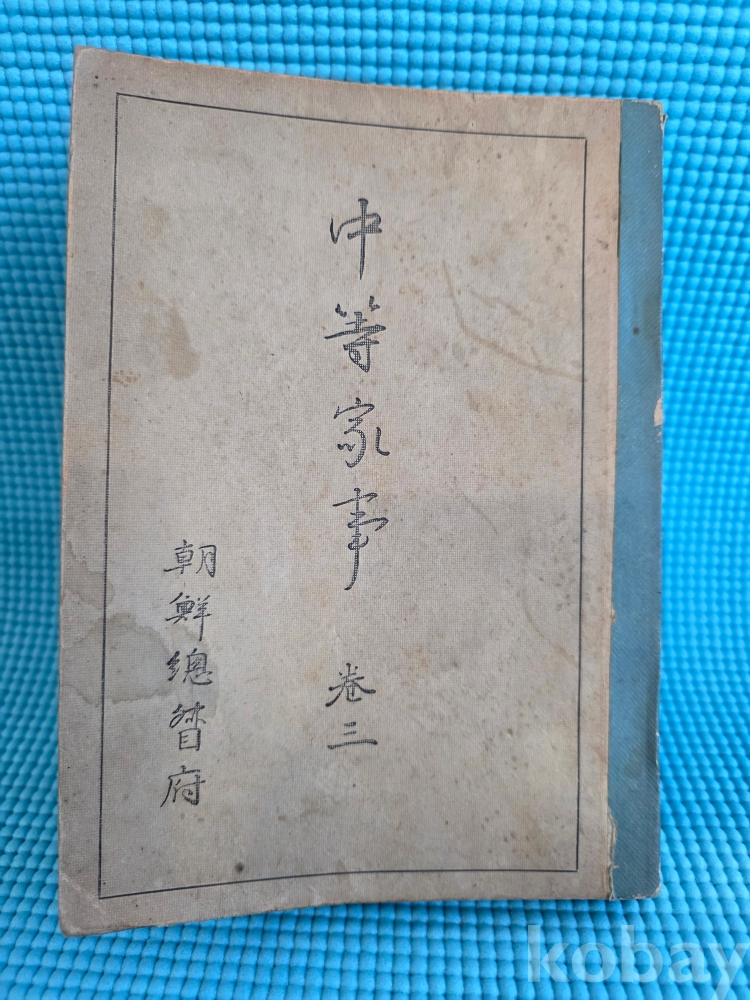 中等家事 卷三
朝鮮總督府
kobay